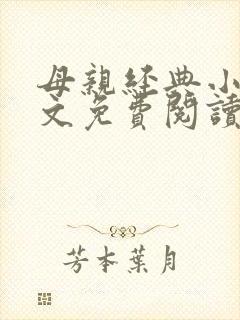 母親経典小
文免費閱讀
芳本葉月